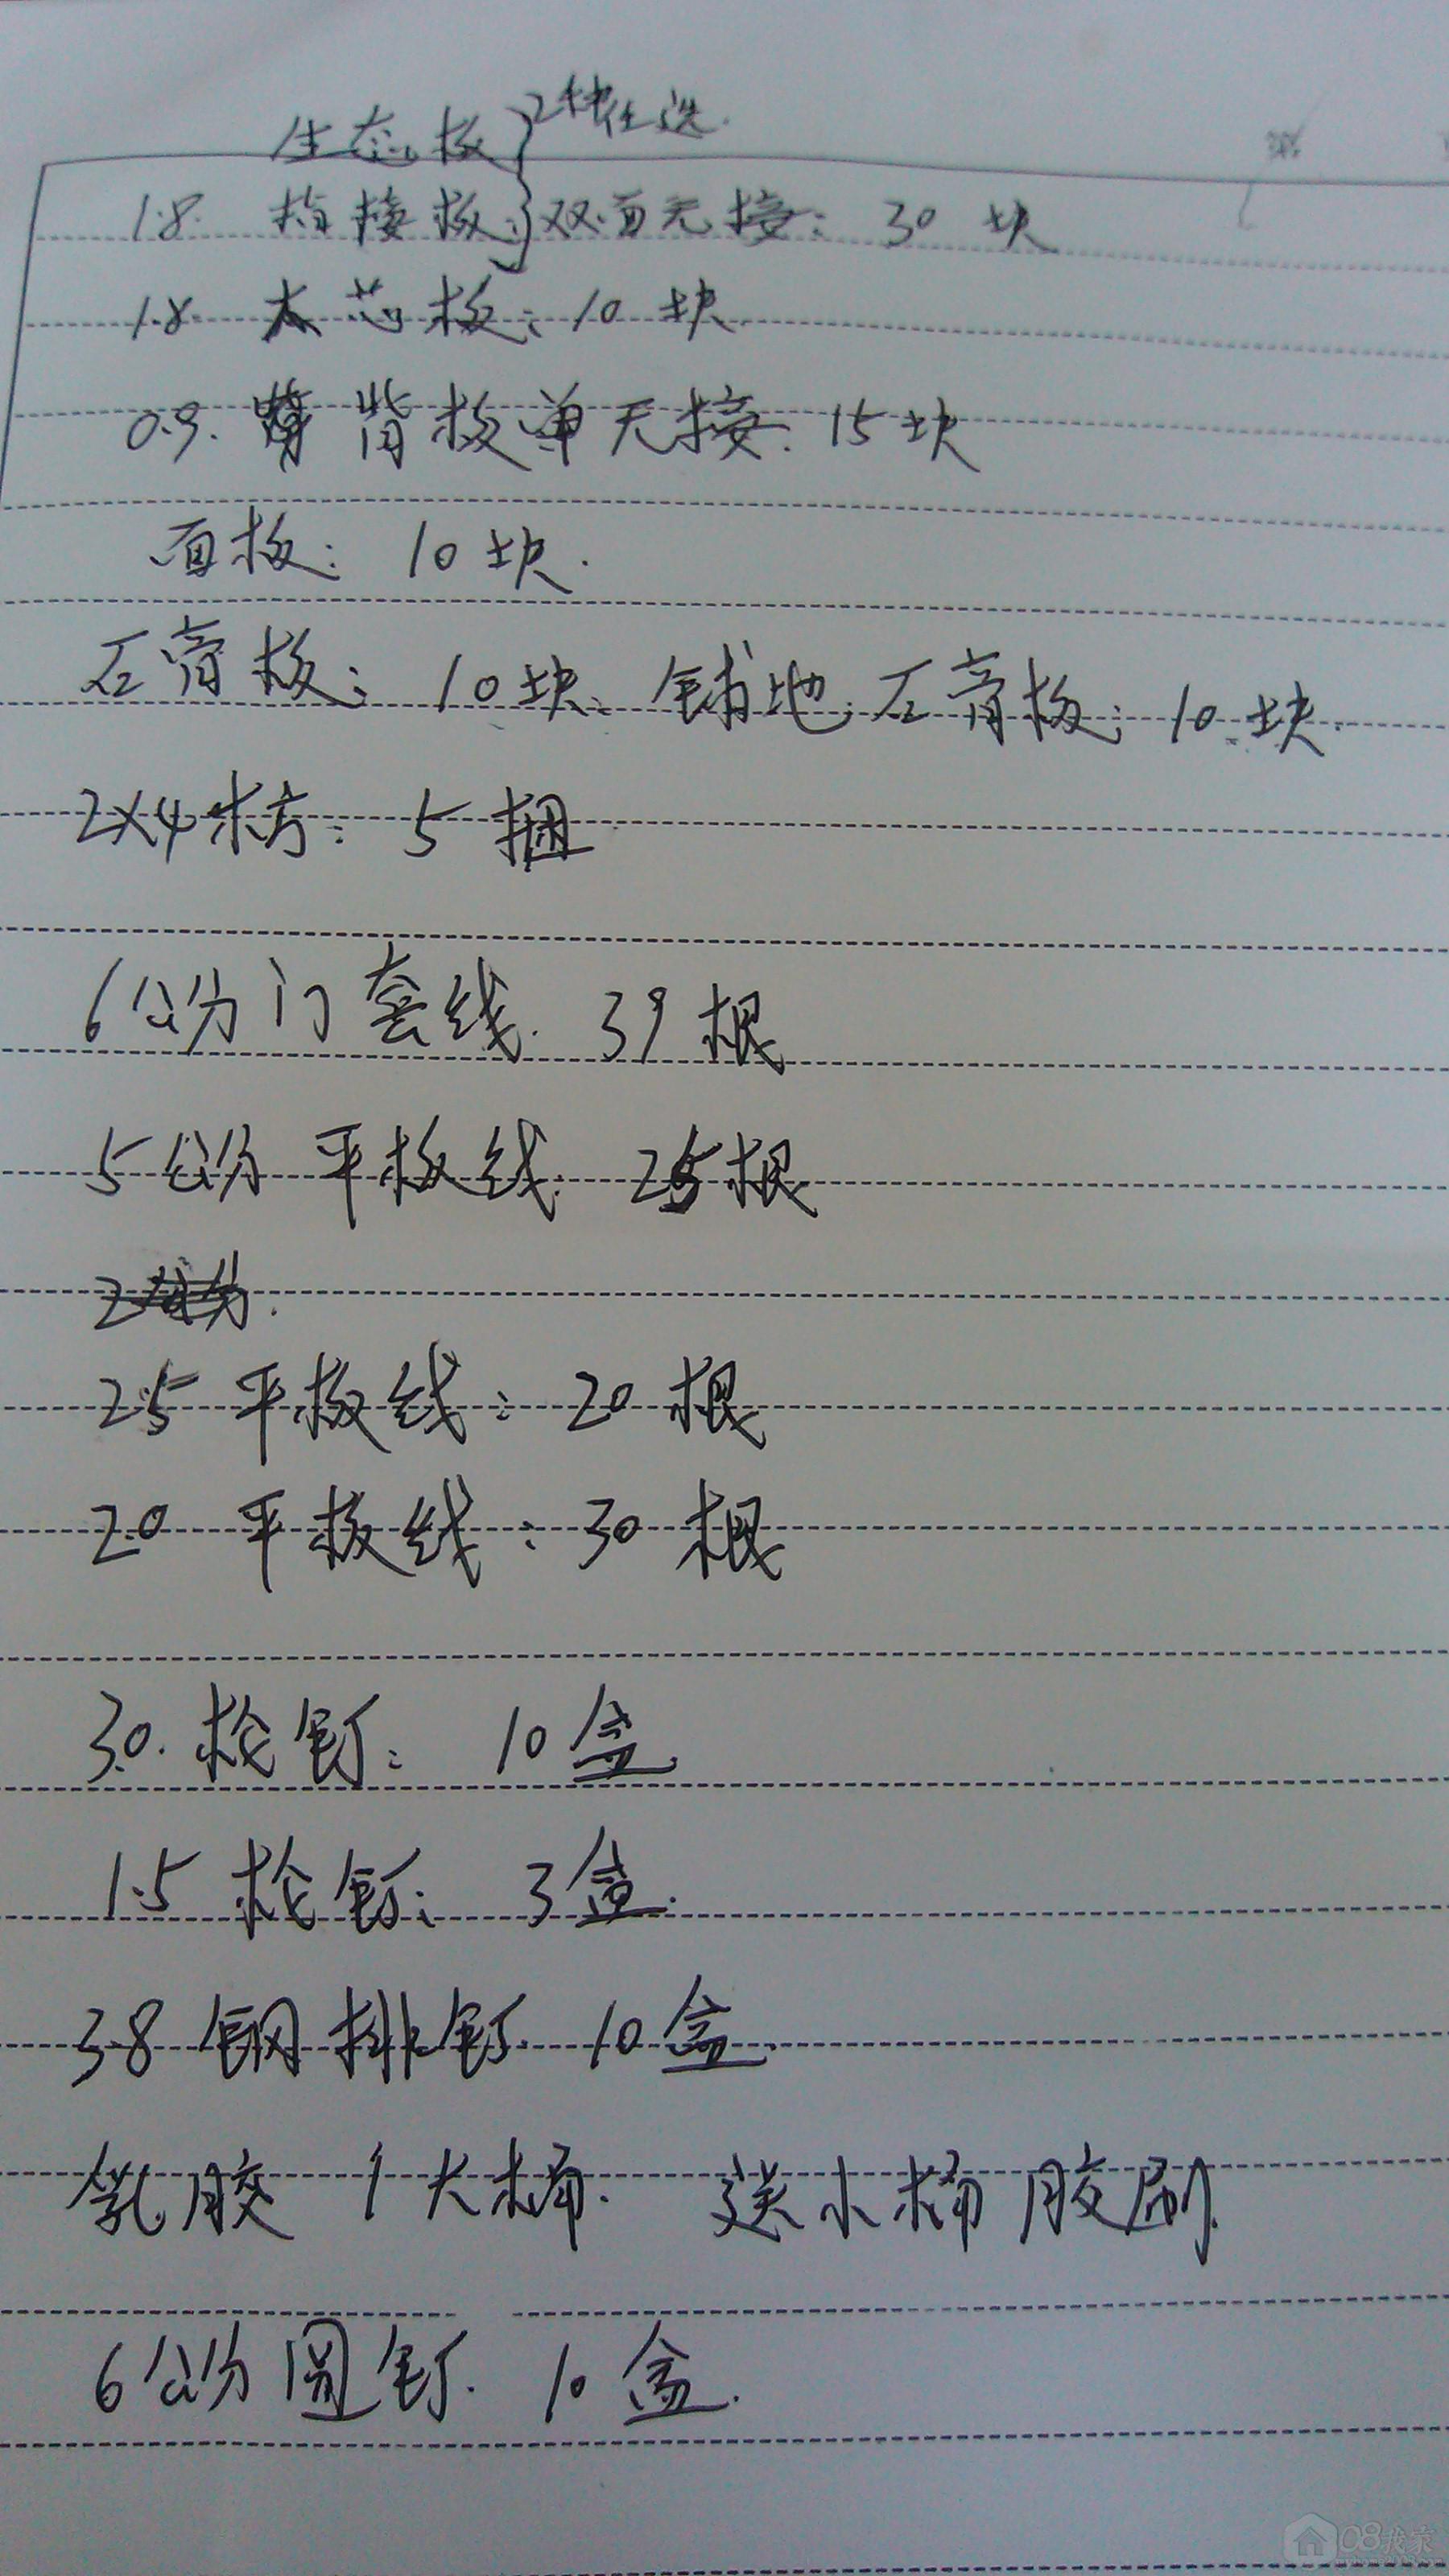 生态板}2种任选.
1.8. 指接板}双面无接: 30 块
1.8. 大芯板: 10 块.
0.9. 背板单无接. 15块
面板: 10块.
石膏板: 10块. 铺地石膏板: 10块.
2X4木方: 5捆
6公分门套线. 39根
5公分 平板线. 25根
2.5 平板线: 20根
2.0 平板线: 30根
3.0. 枪钉: 10盒
1.5 枪钉: 3盒.
3.8 钢排钉. 10盒
乳胶 1大桶. 送小桶胶刷.
6公分圆钉. 10盒.
08我家